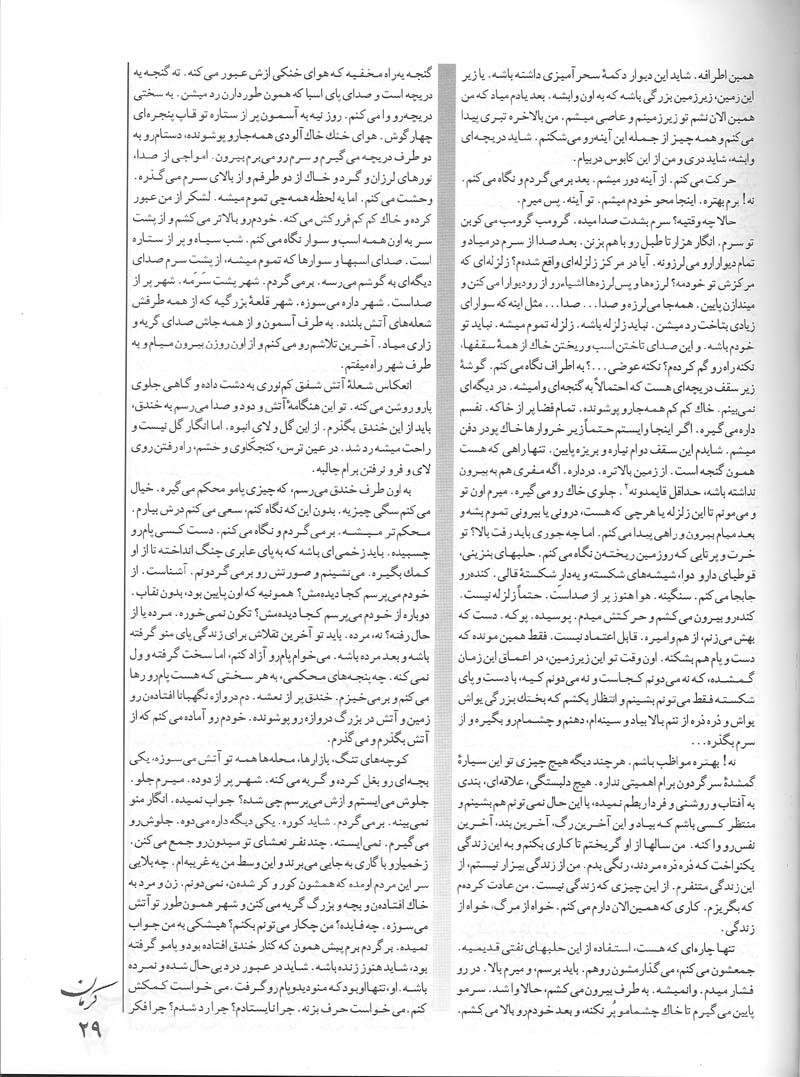 همین اطرافه. شاید این دیوار دکمهٔ سحرآمیزی داشته باشه. یا زیر
این زمین، زیرزمین بزرگی باشه که به اون وابشه. بعد یادم میاد که من
همین الان نشم تو زیرزمینم و عاصی میشم. من بالاخره تبری پیدا
می‌کنم و همه چیز از جمله این آینه‌رو می‌شکنم. شاید دریچه‌ای
وابشه، شاید دری و من از این کابوس دربیام.
حرکت می‌کنم. از آینه دور میشم. بعد برمی‌گردم و نگاه می‌کنم.
نه! برم بهتره. اینجا محو خودم میشم. تو آینه. پس میرم.
حالا چه وقتیه؟ سرم بشدت صدا میده. گرومب گرومب می‌کوبن
تو سرم. انگار هزار تا طبل رو با هم بزنن. بعد صدا از سرم درمیاد و
تمام دیوارارو می‌لرزونه. آیا در مرکز زلزله‌ای واقع شده‌م؟ زلزله‌ای که
مرکزش تو خودمه؟ لرزه‌ها و پس‌لرزه‌ها اشیاءرو از رو دیوارا می‌کنن و
میندازن پایین. همه‌جا می‌لرزه و صدا... صدا... مثل اینه که سوارای
زیادی بتاخت رد میشن. نباید زلزله باشه. زلزله تموم میشه. نباید تو
خودم باشه. و این صدای تاختن اسب و ریختن خاک از همهٔ سقفها،
نکنه راه‌رو گم کرده‌م؟ نکنه عوضی...؟ به اطراف نگاه می‌کنم. گوشهٔ
زیر سقف دریچه‌ای هست که احتمالاً به گنجه‌ای وامیشه. در دیگه‌ای
نمی‌بینم. خاک کم کم همه‌جارو پوشونده. تمام فضا پر از خاکه. نفسم
داره می‌گیره. اگر اینجا وایستم حتماً زیر خروارها خاک پودر دفن
میشم. شایدم این سقف دوام نیاره و بریزه پایین. تنها راهی که هست
همون گنجه است. از زمین بالاتره. درداره. اگه مفری هم به بیرون
نداشته باشه، حداقل قایمدونه۲. جلوی خاک رو می‌گیره. میرم اون تو
و می‌مونم تا این زلزله یا هرچی که هست، درونی یا بیرونی تموم بشه و
بعد میام بیرون و راهی پیدا می‌کنم. اما چه جوری باید رفت بالا؟ تو
خرت و پرتایی که رو زمین ریخته‌ن نگاه می‌کنم. حلبهای بنزینی،
قوطیای دارو دوا، شیشه‌های شکسته و یه‌دار شکستهٔ قالی. کنده‌رو
جابجا می‌کنم. سنگینه. هوا هنوز پر از صداست. حتماً زلزله نیست.
کنده‌رو بیرون می‌کشم و حرکتش میدم. پوسیده. پوکه. دست که
بهش می‌زنم، از هم وامیره. قابل اعتماد نیست. فقط همین مونده که
دست و پام هم بشکنه. اون وقت تو این زیرزمین، در اعماق این زمان
گمشده، که نه می‌دونم کجاست و نه می‌دونم کیه، با دست و پای
شکسته فقط می‌تونم بشینم و انتظار بکشم که بختک بزرگی یواش
یواش و ذره ذره از تنم بالا بیاد و سینه‌ام، دهنم و چشمام‌رو بگیره و از
سرم بگذره...
نه! بهتره مواظب باشم. هر چند دیگه هیچ چیزی تو این سیارهٔ
گمشدهٔ سرگردون برام اهمیتی نداره. هیچ دلبستگی، علاقه‌ای، بندی
به آفتاب و روشنی و فردا ربطم نمیده، با این حال نمی‌تونم هم بشینم و
منتظر کسی باشم که بیاد و این آخرین رگ، آخرین بند، آخرین
نفس‌رو وا کنه. من سالها از او گریختم تا کاری بکنم و به این زندگی
یکنواخت که ذره ذره مردند، رنگی بدم. من از زندگی بیزار نیستم، از
این زندگی متنفرم. از این چیزی که زندگی نیست. من عادت کرده‌م
که بگریزم. کاری که همین الان دارم می‌کنم. خواه از مرگ، خواه از
زندگی.
تنها چاره‌ای که هست، استفاده از این حلبهای نفتی قدیمیه.
جمعشون می‌کنم، می‌گذارمشون روهم. باید برسم، و میرم بالا. در رو
فشار میدم. وانمیشه. به طرف بیرون می‌کشم، حالا واشد. سرمو
پایین می‌گیرم تا خاک چشمامو پُر نکنه، و بعد خودم‌رو بالا می‌کشم.
گنجه یه‌راه مخفیه که هوای خنکی ازش عبور می‌کنه. ته گنجه یه
دریچه است و صدای پای اسبا که همون طور دارن رد میشن. به سختی
دریچه‌رو وا می‌کنم. روزنیه به آسمون پر از ستاره تو قاب پنجره‌ای
چهارگوش. هوای خنک خاک‌آلودی همه‌جارو پوشونده، دستام‌رو به
دو طرف دریچه می‌گیرم و سرم رو می‌برم بیرون. امواجی از صدا،
نورهای لرزان و گرد و خاک از دو طرفم و از بالای سرم می‌گذره.
وحشت می‌کنم. اما یه لحظه همه‌چی تموم میشه. لشکر از من عبور
کرده و خاک کم کم فروکش می‌کنه. خودم‌رو بالاتر می‌کشم و از پشت
سر به اون همه اسب و سوار نگاه می‌کنم. شب سیاه و پر از ستاره
است. صدای اسبها و سوارها که تموم میشه، از پشت سرم صدای
دیگه‌ای به گوشم می‌رسه. برمی‌گردم. شهر پشت سَرَمه. شهر پر از
صداست. شهر داره می‌سوزه. شهر قلعهٔ بزرگیه که از همه طرفش
شعله‌های آتش بلنده. به طرف آسمون و از همه جاش صدای گریه و
زاری میاد. آخرین تلاشم رو می‌کنم و از اون روزن بیرون میام و به
طرف شهر راه میفتم.
انعکاس شعلهٔ آتش شفق کم‌نوری به دشت داده و گاهی جلوی
بارو روشن می‌کنه. تو این هنگامهٔ آتش و دود و صدا می‌رسم به خندق،
باید از این خندق بگذرم. از این گل و لای انبوه. اما انگار گل نیست و
راحت میشه رد شد. در عین ترس، کنجکاوی و خشم، راه رفتن روی
لای و فرو نرفتن برام جالبه.
به اون طرف خندق می‌رسم، که چیزی پامو محکم می‌گیره. خیال
می‌کنم سگی چیزیه. بدون این که نگاه کنم، سعی می‌کنم درش بیارم.
محکم‌تر میشه. برمی‌گردم و نگاه می‌کنم. دست کسی پام‌رو
چسبیده. باید زخمی‌ای باشه که به پای عابری چنگ انداخته تا از او
کمک بگیره. می‌نشینم و صورتش رو برمی‌گردونم. آشناست. از
خودم می‌پرسم کجا دیده‌مش؟ همونیه که اون پایین بود، بدون نقاب.
دوباره از خودم می‌پرسم کجا دیده‌مش؟ تکون نمی‌خوره. مرده یا از
حال رفته؟ نه، مرده. باید تو آخرین تقلاش برای زندگی پای منو گرفته
باشه و بعد مرده باشه. می‌خوام پام‌رو آزاد کنم، اما سخت گرفته و ول
نمی‌کنه. چه پنجه‌های محکمی، به هر سختی که هست پام‌رو رها
می‌کنم و برمی‌خیزم. خندق پر از نعشه. دم دروازه نگهبانا افتاده‌ن رو
زمین و آتش در بزرگ دروازه رو پوشونده. خودم رو آماده می‌کنم که از
آتش بگذرم و می‌گذرم.
کوچه‌های تنگ، بازارها، محله‌ها همه تو آتش می‌سوزه، یکی
بچه‌ای رو بغل کرده و گریه می‌کنه. شهر پر از دوده. میرم جلو.
جلوش می‌ایستم و ازش می‌پرسم چی شده؟ جواب نمیده. انگار منو
نمی‌بینه. برمی‌گردم. شاید کوره. یکی دیگه داره می‌دوه. جلوش‌رو
می‌گیرم. نمی‌ایسته. چند نفر نعشای تو میدون‌رو جمع می‌کنن.
زخمیارو با گاری به جایی می‌برند و این وسط من یه غریبه‌ام. چه بلایی
سر این مردم اومده که همشون کور و کر شده‌ن، نمی‌دونم. زن و مرد به
خاک افتاده‌ن و بچه و بزرگ گریه می‌کنن و شهر همون‌طور تو آتش
می‌سوزه. چه فایده؟ من چکار می‌تونم بکنم؟ هیشکی به من جواب
نمیده. برگردم برم پیش همون که کنار خندق افتاده بود و پامو گرفته
بود، شاید هنوز زنده باشه. شاید در عبور درد بی‌حال شده و نمرده
باشه. او، تنها او بود که منو دید و پام رو گرفت. می‌خواست کمکش
کنم. می‌خواست حرف بزنه. چرا نایستادم؟ چرا رد شدم؟ چرا فکر
کرمان
۲۹